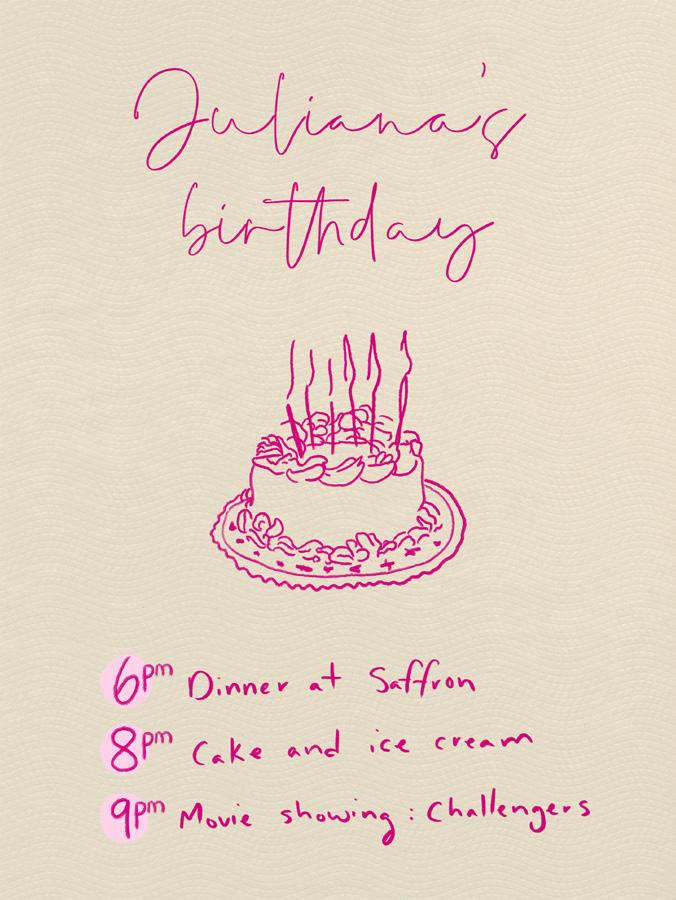 Juliana's
birthday
6pm Dinner at Saffron
8pm Cake and ice cream
9pm Movie showing: Challengers